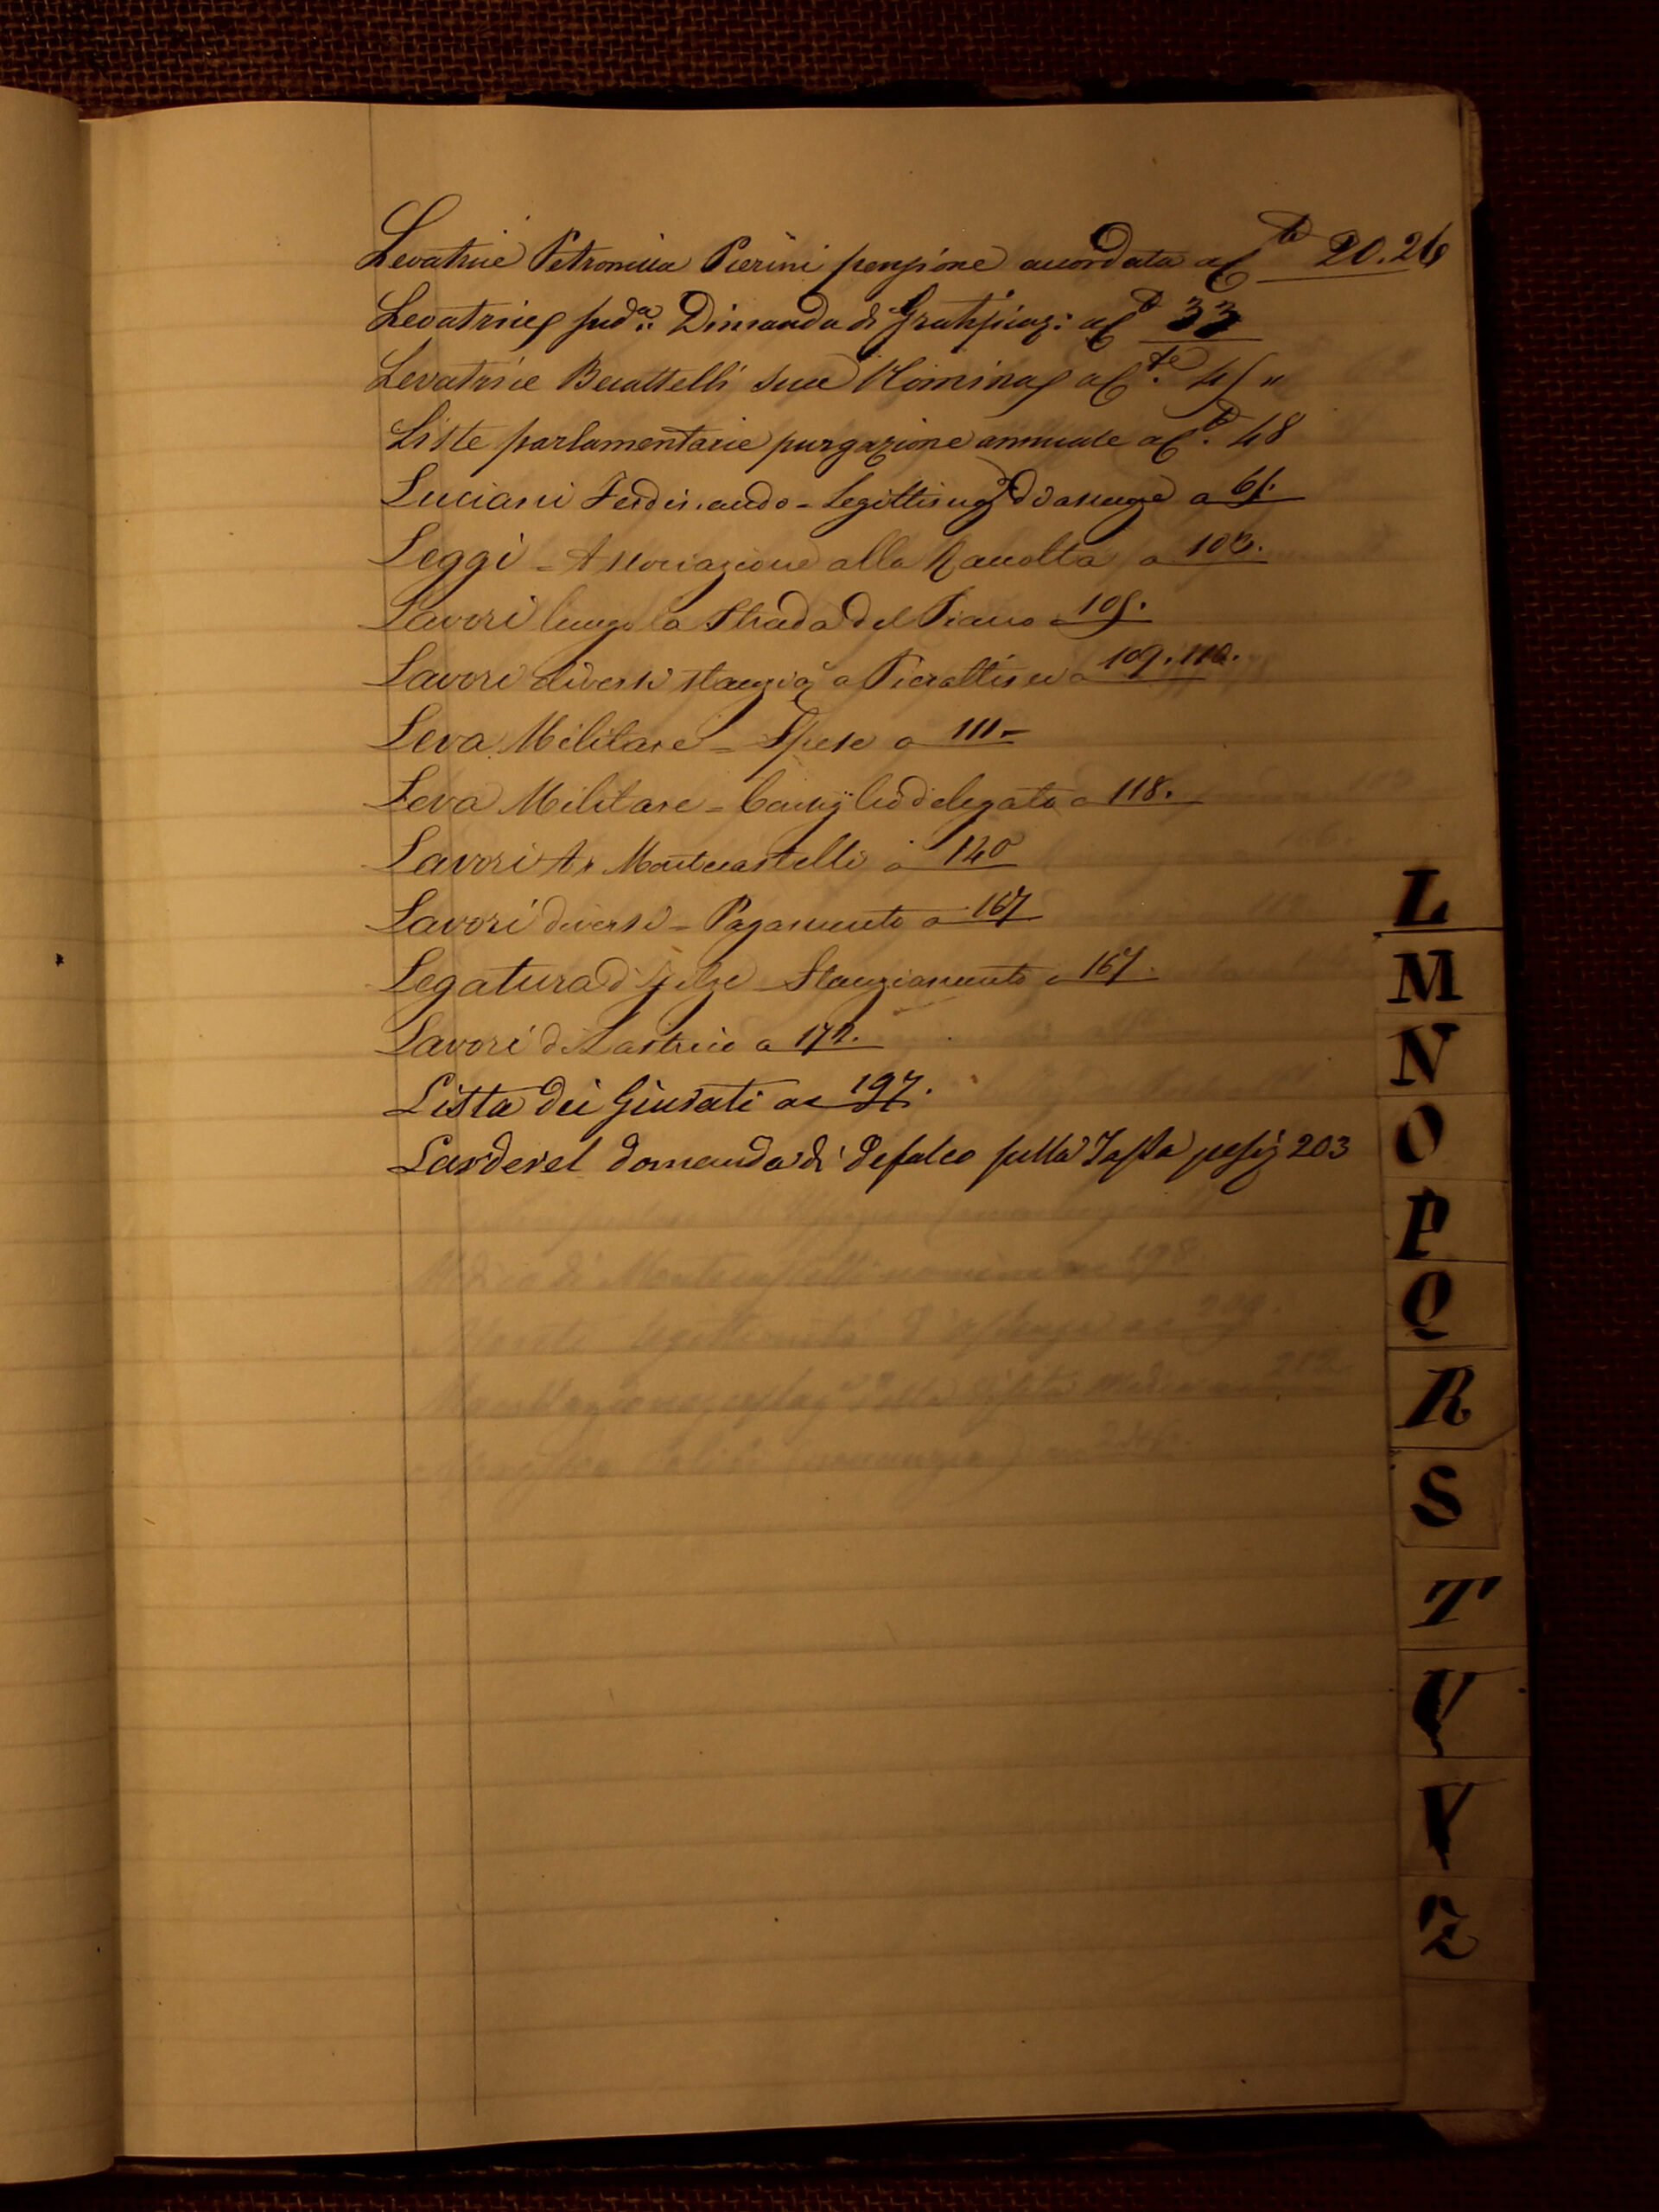 Levatrice Petronilla Pierini pensione accordata a C.te 20.26
Levatrice sud.a Dimanda di Gratificaz: a C.te 33
Levatrice Becattelli sua Nomina a C.te 45 "
Liste parlamentarie purgazione annuale a C.te 48
Luciani Ferdinando - Legittimaz d'assenza a 61.
Leggi - Associazione alla Raccolta a
Lavori lungo la Strada del Piano a 105.
Lavori diversi stanzia a Pierattini a 109. 110.
Leva Militare - Spese a 111 -
Leva Militare - Consiglio delegato a 118.
Lavori Montecastelli a 140
Lavori diversi - Pagamento a 167
Legatura di Stanziamento a 167.
Lavori di Lastrico a 172.
Lista dei Giurati a c 197.
Larderel domanda di defalco sulla Tassa 203
Medico di Montecastelli nomina ac 198
L
M
N
O
P
Q
R
S
T
V
V
Z